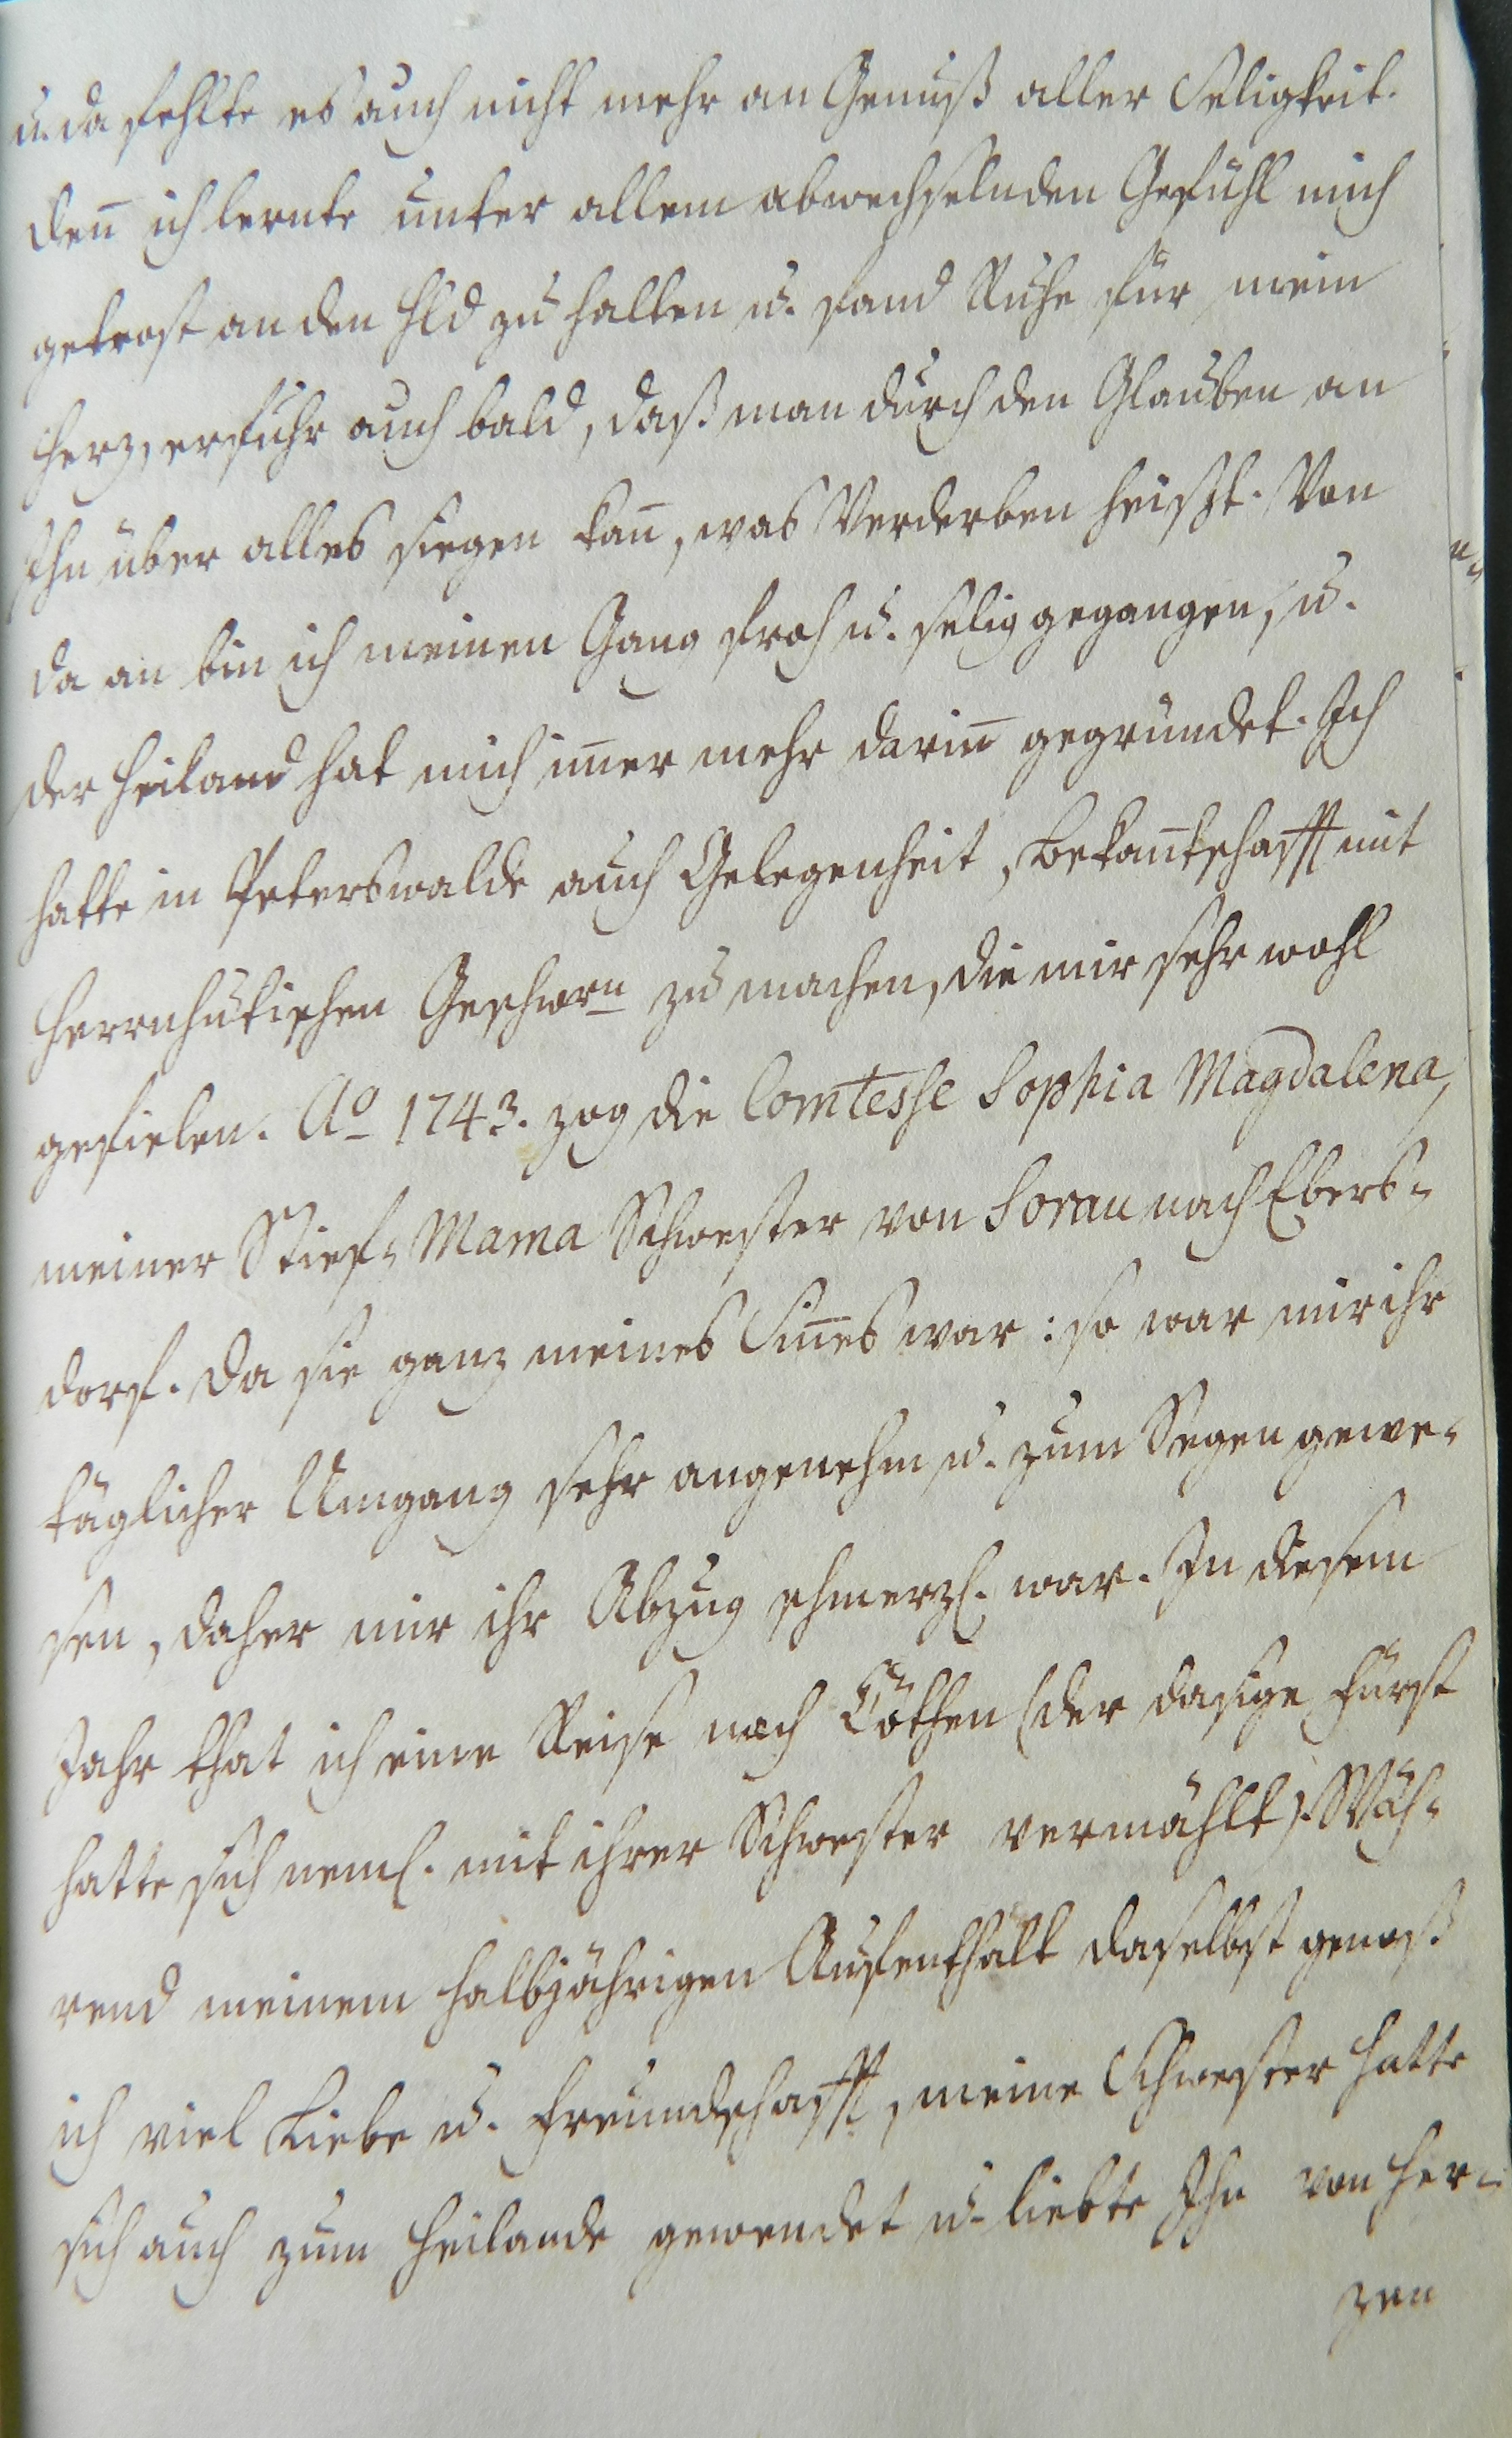 u. da fehlte es auch nicht mehr an Genuß aller Seligkeit.
den̄ ich lernte unter allem abwechselnden Gefühl mich
getrost an den Hld zu halten u. fand Ruhe für mein
Herz, erfuhr auch bald, daß man durch den Glauben an
Ihn über alles siegen kan̄, was Verderben heißt. Von
da an bin ich meinen Gang froh u. selig gegangen, u.
der Heiland hat mich im̄er mehr darin̄ gegründet. Ich
hatte in Peterswalde auch Gelegenheit, Bekan̄tschafft mit
Herrnhutischen Geschwrn zu machen, die mir sehr wohl
gefielen. Ao 1743. zog die Comtesse Sophia Magdalena,
meiner Stief-Mama Schwester von Sorau nach Ebers-
dorf. Da sie ganz meines Sin̄es war: so war mir ihr
täglicher Umgang sehr angenehm u. zum Segen gewe-
sen, daher mir ihr Abzug schmerzl. war. In diesem
Jahr that ich eine Reise nach Cöthen (der dasige Fürst
hatte sich neml. mit ihrer Schwester vermählt). Wäh-
rend meinem halbjährigen Aufenthalt daselbst genoß
ich viel Liebe u. Freundschafft, meine Schwester hatte
sich auch zum Heilande gewendet u. liebte Ihn von Her-
zen